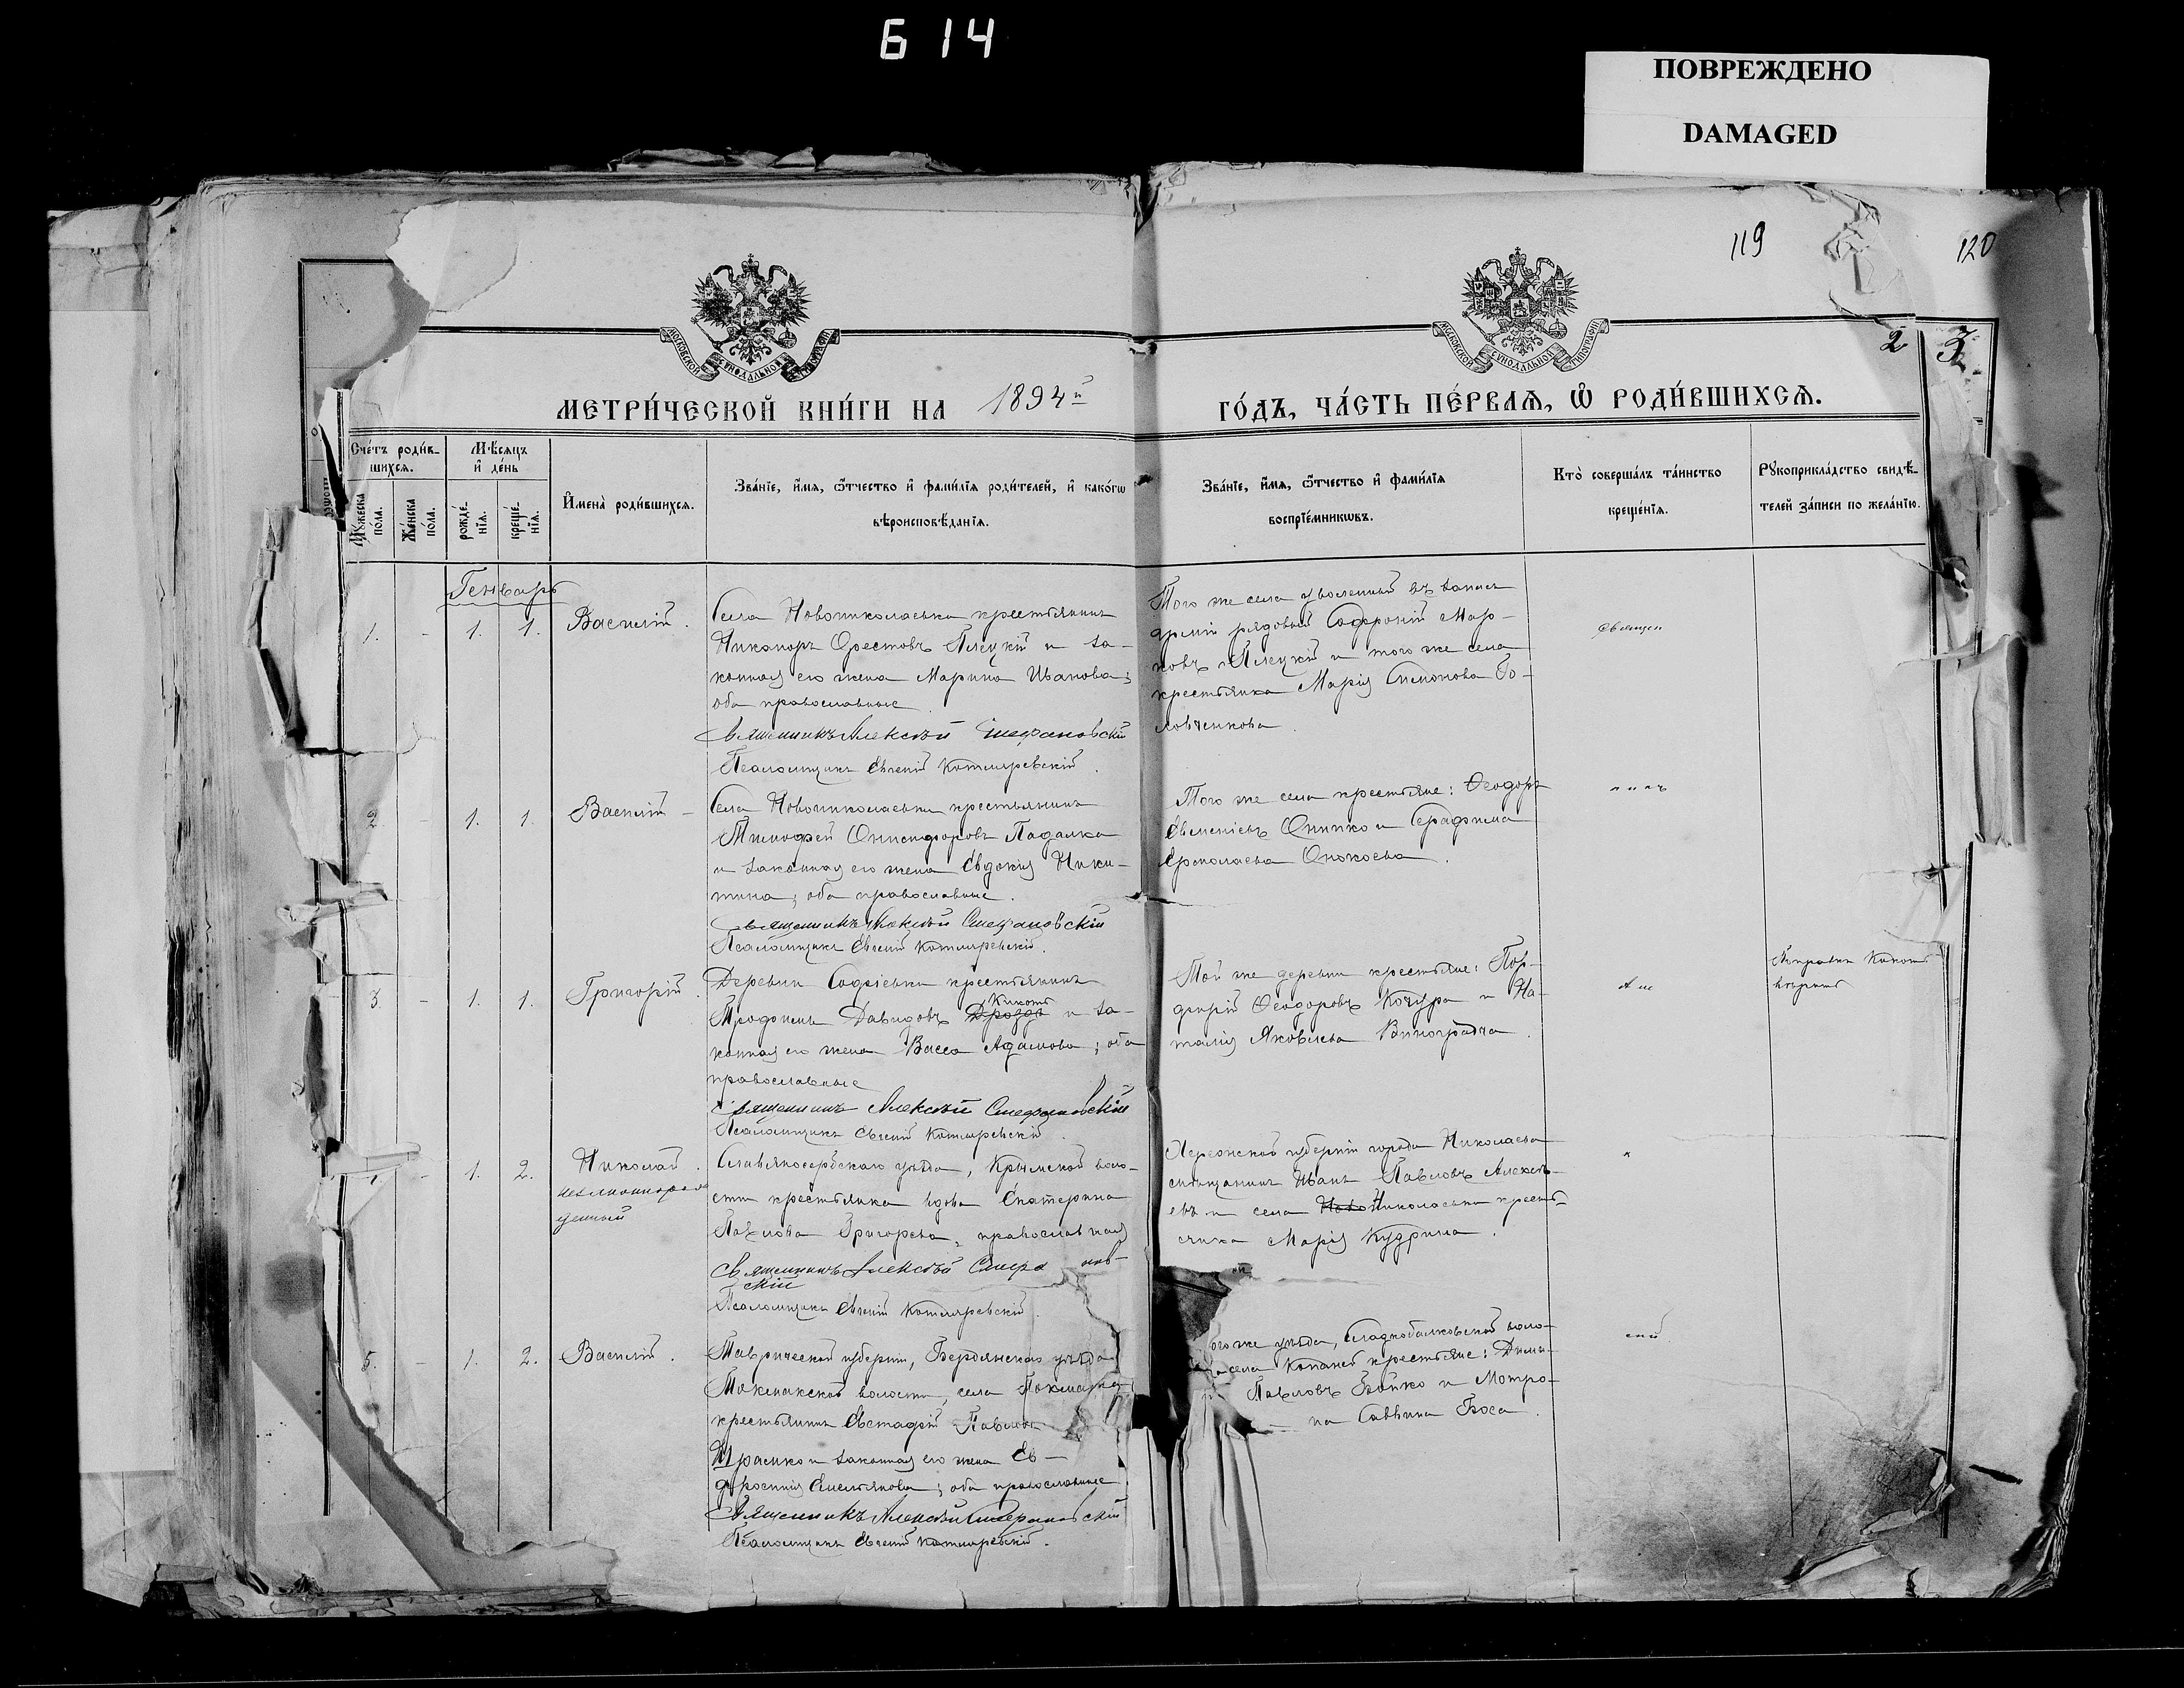 Б 14
ПОВРЕЖДЕНО
DAMAGED
119
120
2
3
МОСКОВСКОЙ СУНОДАЛЬНОЙ ТИПОГРАФІИ
МОСКОВСКОЙ СУНОДАЛЬНОЙ ТИПОГРАФІИ
МЕТРИ́ЧЕСКОЙ КНИ́ГИ НА 1894й
ГО́ДЪ, ЧА́СТЬ ПЕ́РВАѦ, Ѡ҆ РОДИ́ВШИХСѦ.
Сче́тъ роди́в-
шихсѧ.
Мѣ́сѧцъ
и҆ де́нь
Мꙋ́жеска
по́ла.
Же́нска
по́ла.
рожде́-
нїѧ.
креще́-
нїѧ.
И҆мена̀ роди́вшихсѧ.
Зва́нїе, и҆́мѧ, ѻ҆́тчество и҆ фами́лїѧ роди́телей, и҆ како́гѡ
вѣроисповѣ́данїѧ.
Зва́нїе, и҆́мѧ, ѻ҆́тчество и҆ фами́лїѧ
воспрїе́мникѡвъ.
Кто̀ соверша́лъ та́инство
креще́нїѧ.
Рꙋкоприкла́дство свидѣ́-
телей за́писи по жела́нїю.
Генварь
1. - 1. 1. Василій.
Села Новониколаевка крестьянинъ
Никаноръ Орестовъ Пляцкій и за-
конная его жена Марина Иванова;
оба православные.
Священникъ Алексѣй Стефановскій
Псаломщикъ Евгеній Котляревскій.
Того же села уволенный въ запасъ
арміи рядовый Софроній Мар-
ковъ Пляцкій и того же села
крестьянка Марія Симонова Го-
ловченкова.
Священ
2 - 1. 1. Василій -
Села Новониколаевки крестьянинъ
Тимофей Онисифоровъ Падалка
и законная его жена Евдокія Ники-
тина; оба православные.
Священникъ Алексѣй Стефановскій
Псаломщикъ Евгеній Котляревскій.
Того же села крестьяне: Ѳеодоръ
Евменіевъ Онипко и Серафима
Ермолаева
никъ
3. - 1. 1. Григорій.
Деревни Софіевки крестьянинъ
Трофимъ Давидовъ Дроздъ и за-
конная его жена Васса Адамова; оба
православные
Священникъ Алексѣй Стефановскій
Псаломщикъ Евгеній Котляревскій.
Той же деревни крестьяне: Пор-
фирій Ѳеодоровъ Кочура и На-
талія Яковлева
Ал
- 1. 2. Николай.
незаконнорож
денный
Славяносербскаго уѣзда, Крымской воло-
сти крестьянка вдова Екатерина
Павлова Григорьева, православная
Священникъ Алексѣй Стефа нов-
скій
Псаломщикъ Евгеній Котляревскій.
Херсонской губерніи города Николаева
мѣщанинъ Иванъ Павловъ Алексѣ-
евъ и села Ново Николаевки кресть-
янка Марія Кудрина.
5. - 1. 2. Василій.
Таврической губерніи, Бердянскаго уѣзда
Токмакской волости, села Токмака
крестьянинъ Евстафій Павловъ
и законная его жена Ев-
фросинія Емельянова; оба православные
Священникъ Алексѣй Стефановскій
Псаломщикъ Евгеній Котляревскій.
ого же уѣзда, Сладкобалковской воло-
села Копаней крестьяне: Дими-
Павловъ Бойко и Матро-
на Саввина Боса.
скій.